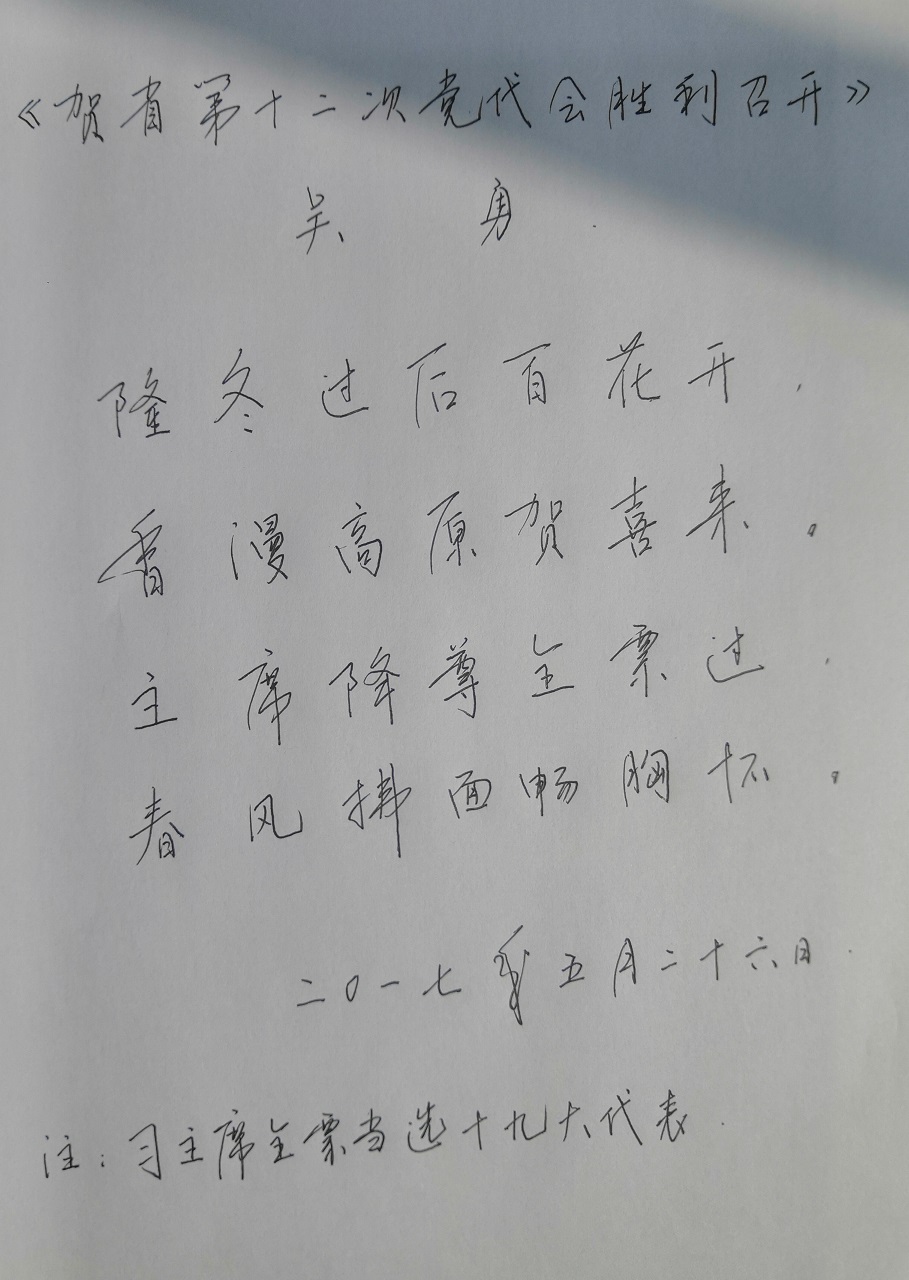 《贺省第十二次党代会胜利召开》
吴 勇
隆冬过后百花开，
香漫高原贺喜来。
主席降尊全票过，
春风拂面畅胸怀。
二〇一七年五月二十六日
注：习主席全票当选十九大代表